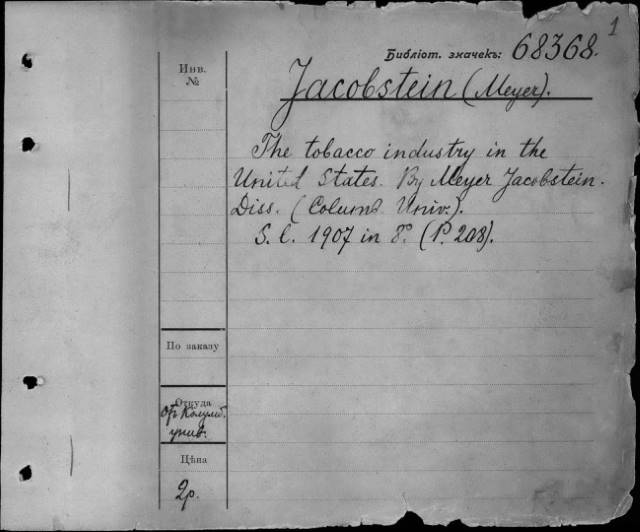 1
Библіот. значекъ: 68368.
Инв.
№
Jacobstein (Meyer).
The tobacco industry in the
United States. By Meyer Jacobstein.
Diss. (Columb. Univ.).
S. l. 1907 in 8º. (P. 208).
По заказу
Откуда
отъ Колумб.
унив.
Цѣна
2р.